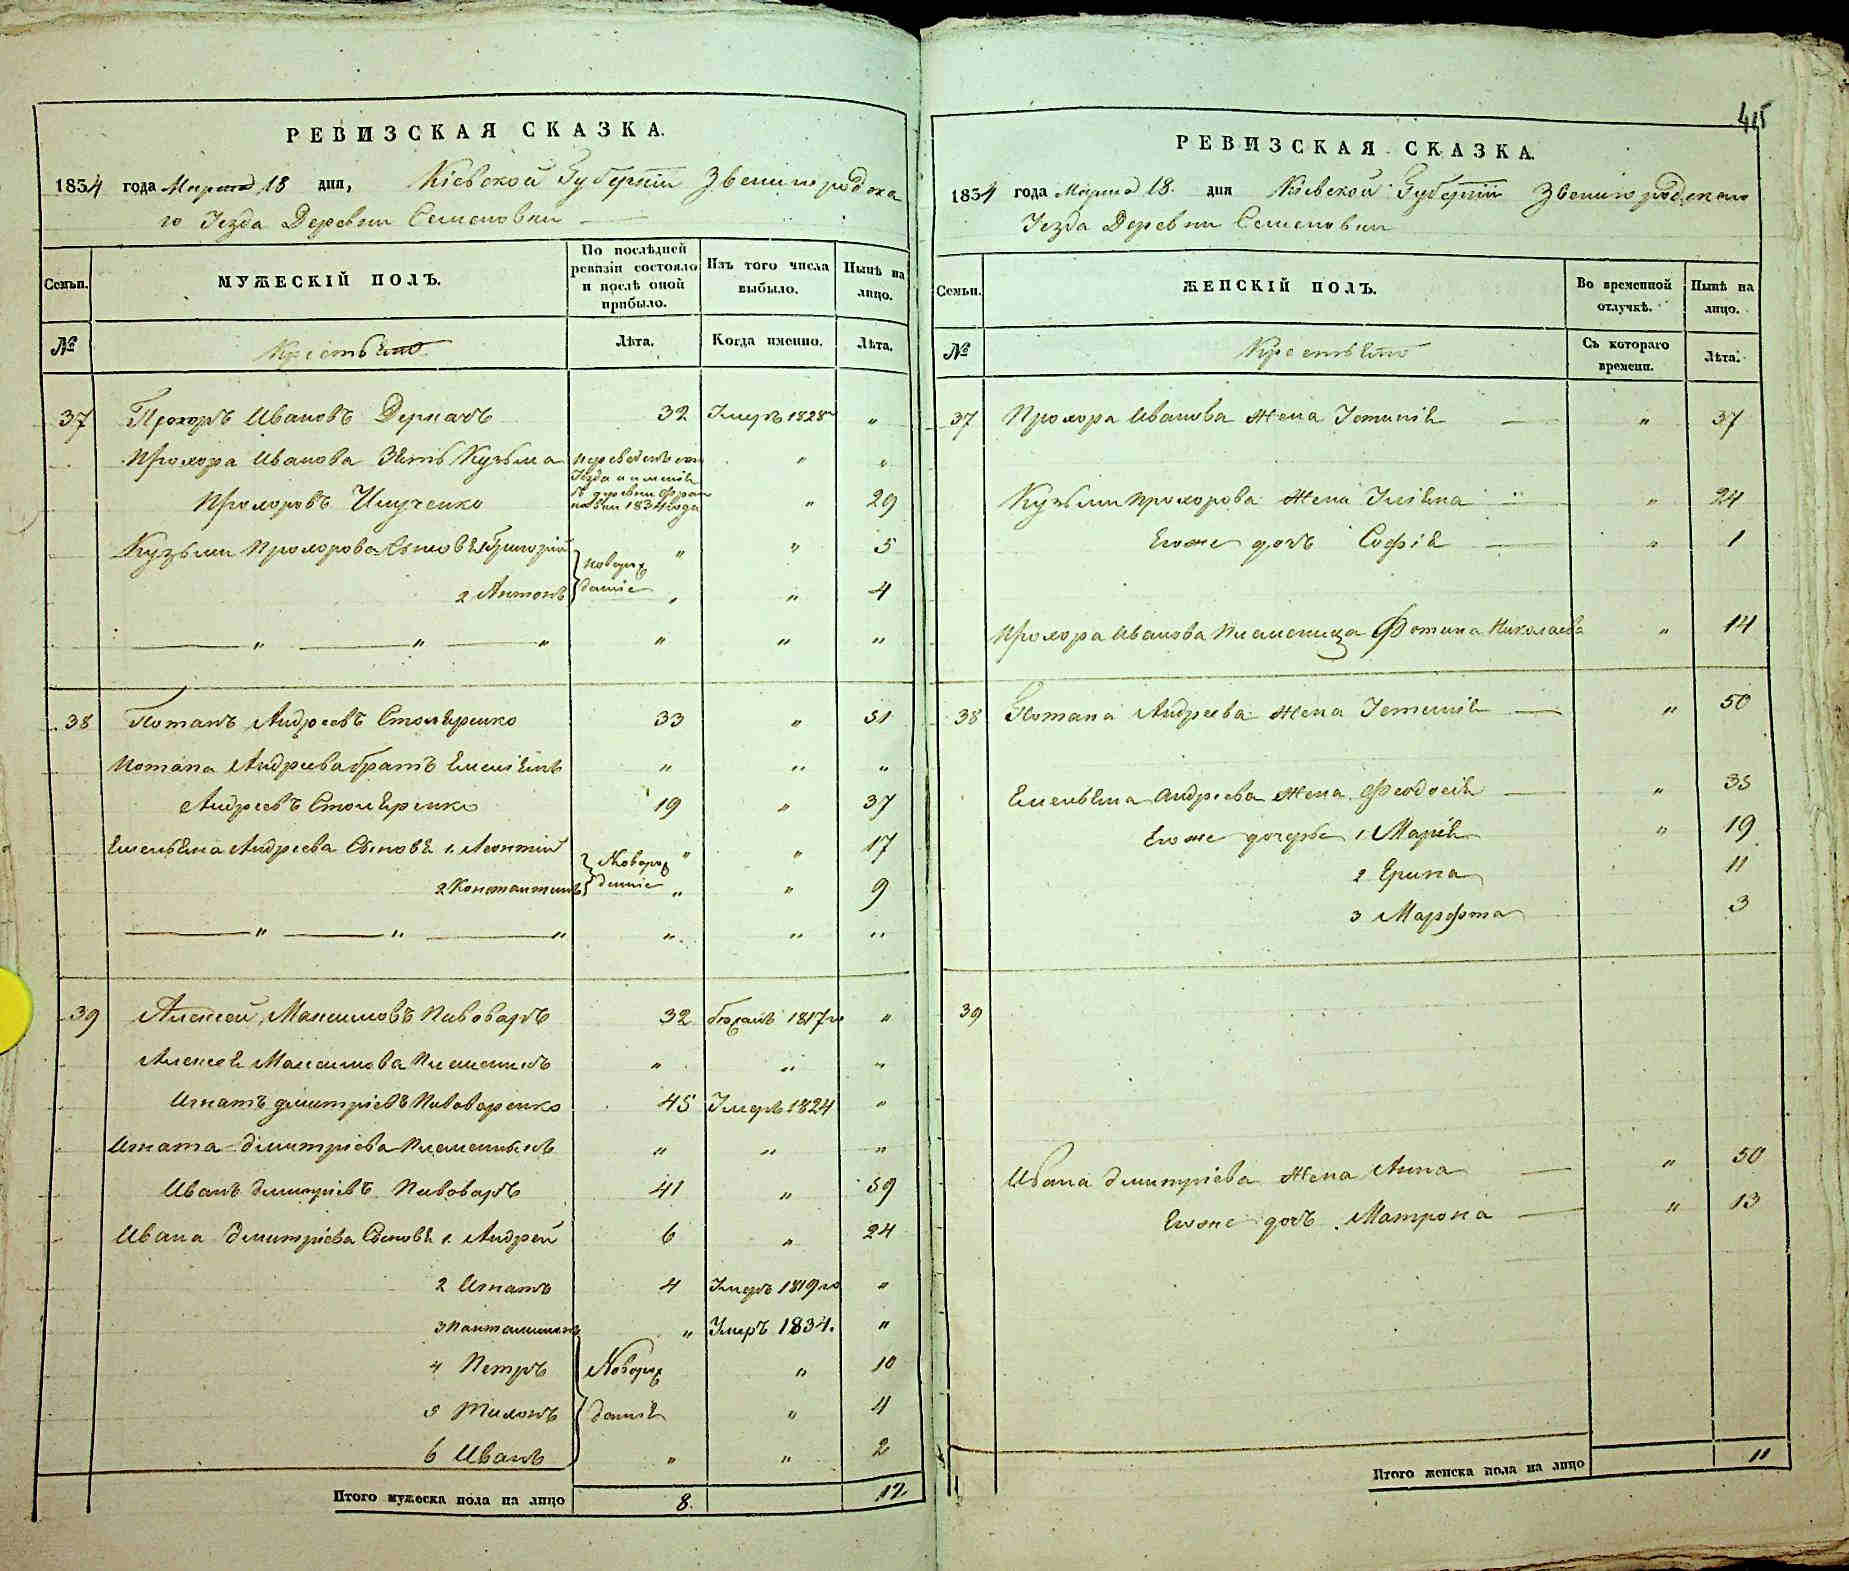 РЕВИЗСКАЯ СКАЗКА.
1834 года Марта 18 дня, Кіевской Губерніи Звенигородска
го Уезда Деревни Семеновки
Семьи.
МУЖЕСКІЙ ПОЛЪ.
По послѣдней ревизіи состояло и послѣ оной прибыло.
Изъ того числа выбыло.
Нынѣ на лицо.
№
Крестьяне
Лѣта.
Когда именно.
Лѣта.
37 Прохоръ Ивановъ Деркачъ 32 Умеръ 1828 "
Прохора Иванова Зять Кузьма " "
Прохоровъ 1834 года " 29
Кузьмы Прохорова Сыновья Григорій " " 5
2 Антонъ новорож
даніе " " 4
" " " " " "
38 Потапъ Андреевъ Столяренко 33 " 51
Потапа Андреева братъ Емельянъ " " "
Андреевъ Столяренко 19 " 37
Емельяна Андреева Сыновья 1. Леонтій " " 17
2 Константинъ Новорож
данніе " " 9
" " " " " "
39 Алексей Максимовъ Пивоваръ 32 бежалъ 1817го "
Алексея Максимова Племенникъ " " "
Игнатъ Дмитріевъ Пивоваренко 45 Умеръ 1824 "
Игната Дмитріева Племенникъ " " "
Иванъ Дмитріевъ Пивоваръ 41 " 59
Ивана Дмитріева Сыновья 1. Андрей 6 " 24
2 Игнатъ 4 Умеръ 1819го "
3 Пантелимонъ " Умеръ 1834. "
4 Петръ Новорож " 10
5 данніе " 4
6 Иванъ " " 2
Итого мужеска пола на лицо 8. 12.
415
РЕВИЗСКАЯ СКАЗКА.
1834 года Марта 18. дня Кіевской Губерніи Звенигородскаго
Уезда Деревни Семеновки
Семьи.
ЖЕНСКІЙ ПОЛЪ.
Во временной отлучкѣ.
Нынѣ на лицо.
№
Крестьяне
Съ котораго времени.
Лѣта.
37 Прохора Иванова Жена Устинія " 37
Кузьмы Прохорова Жена Уліяна " " 24
Егоже дочь Софія " 1
Прохора Иванова Племеница Фотина Николаева " 14
38 Потапа Андреева Жена Устинія " 50
Емельяна Андреева Жена Феодосія " 35
Егоже дочери 1. Марія " 19
2 Ерина 11
3 Марфта 3
39
Ивана Дмитріева Жена Анна " 50
Егоже дочь Матрона " 13
Итого женска пола на лицо 11